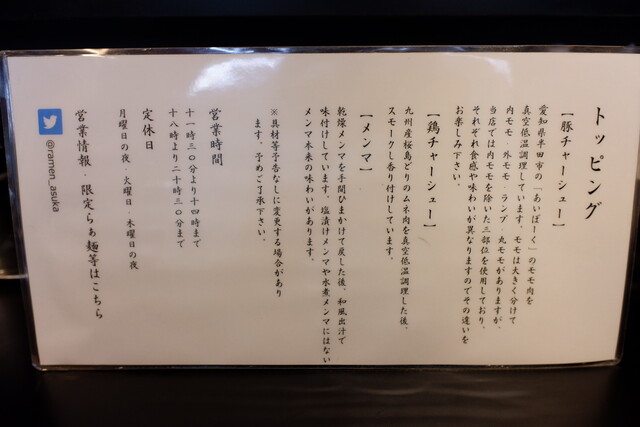 トッピング
【豚チャーシュー】
愛知県半田市の「あいぽーく」のモモ肉を
真空低温調理しています。モモは大きく分けて
内モモ・外モモ・ランプ・丸モモがありますが、
当店では内モモを除いた三部位を使用しており、
それぞれ食感や味わいが異なりますのでその違いを
お楽しみ下さい。
【鶏チャーシュー】
九州産桜島どりのムネ肉を真空低温調理した後、
スモークし香り付けしています。
【メンマ】
乾燥メンマを手間ひまかけて戻した後、和風出汁で
味付けしています。塩漬けメンマや水煮メンマにはない
メンマ本来の味わいがあります。
※具材等予告なしに変更する場合があり
ます。予めご了承下さい。
営業時間
十一時三〇分より十四時まで
十八時より二十時三〇分まで
定休日
月曜日の夜・火曜日・木曜日の夜
営業情報・限定らぁ麺等はこちら
@ramen_asuka